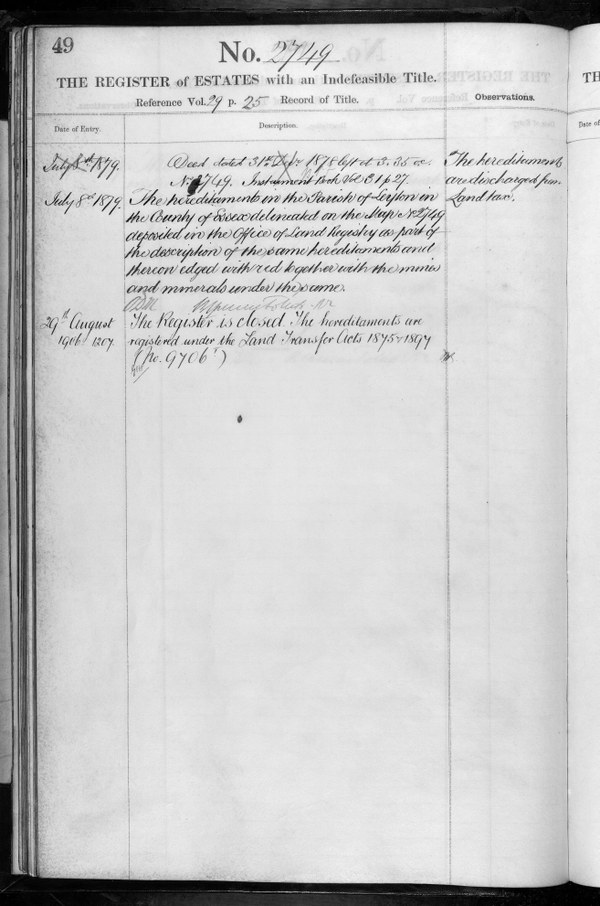 49
No. 2749
THE REGISTER of ESTATES with an Indefeasible Title.
Reference Vol. 29 p. 25 Record of Title.
Observations.
Date of Entry.
Description.
July 8th 1879.
Deed dated 31st 1878 left at 3.35 oc.
No. 2749. Instrument Book Vol 31 p 27.
The hereditaments
are discharged from
Land tax.
July 8th 1879.
The hereditaments in the Parish of Leyton in
the County of Essex delineated on the Map No 2749
deposited in the Office of Land Registry as part of
the description of the same hereditaments and
thereon edged with red together with the mines
and minerals under the same.
29th August
1906 1207.
The Register is closed. The hereditaments are
registered under the Land Transfer Acts 1875 & 1897
(No. 9706)
TH
Date of